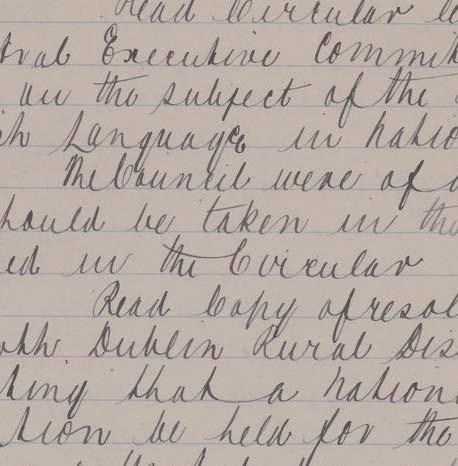 Read Circular le
tral Executive Commit
on the subject of the
sh Language in natio
The Council were of o
should be taken in the
ed in the Circular
Read Copy of resol
oth Dublin Rural Dis
ting that a nation
tion be held for the